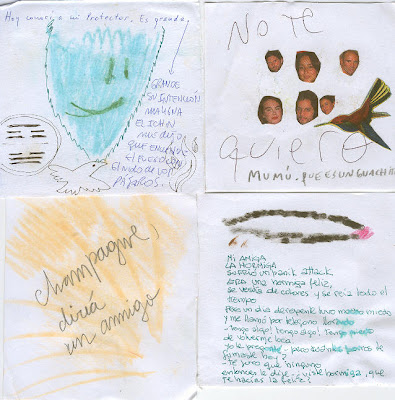 Hoy conocí a mi Protector. Es grande,
GRANDE
SU INTENCIÓN
MAÑANA
EL ICHIN
ME DIJO
QUE
EL FUEGO
EL NIDO DE LOS
PÁJAROS.
NO TE
quiero
MUMÚ. QUE ES UN
Champagne,
dirá
un amigo
MI AMIGA
LA HORMIGA
SUFRIÓ UN panik attack
ERA una hormiga feliz,
se vestía de colores y se reía todo el
tiempo
Pero un día de repente tuvo mucho miedo
y me llamó por teléfono llorando
- Tengo algo! Tengo algo! Tengo miedo
de volverme loca
Yo le pregunté - pero cuántos porros te
fumaste hoy?
- Te juro que ninguno
entonces le dije - viste hormiga, que
te hacías la feliz?